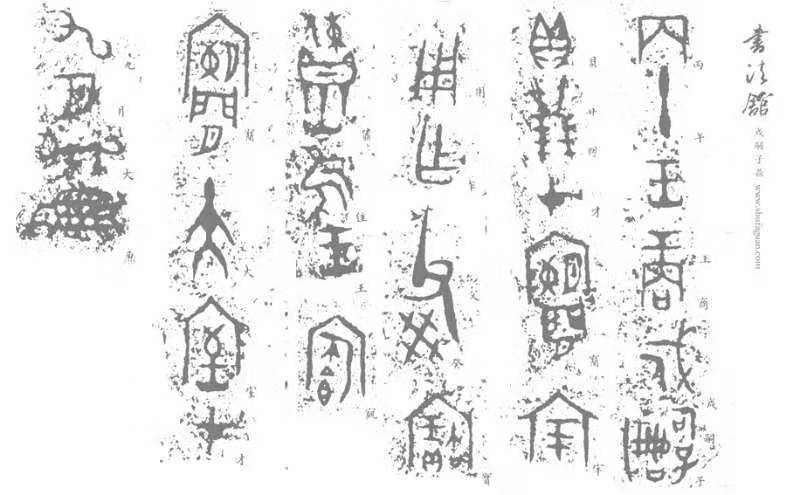 書法館 戍嗣子鼎 www.shufaguan.com
丙午王商戍嗣子
貝廿朋才宗
用乍父癸寶
隹王
大室才
九月犬魚